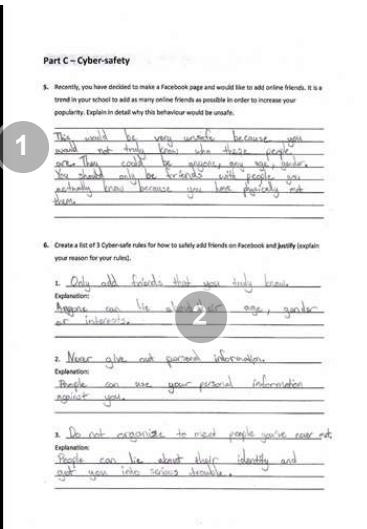 Part C – Cyber-safety
5. Recently, you have decided to make a Facebook page and would like to add online friends. It is a
trend in your school to add as many online friends as possible in order to increase your
popularity. Explain in detail why this behaviour would be unsafe.
This would be very unsafe because you
would not truly know who these people
are. They could be anyone, any age, gender.
You should only be friends with people you
actually know because you have physically met
them.
1
6. Create a list of 3 Cyber-safe rules for how to safely add friends on Facebook and justify (explain
your reason for your rules).
1. Only add friends that you truly know.
Explanation:
Anyone can lie about their age, gender
or interests.
2
2. Never give out personal information.
Explanation:
People can use your personal information
against you.
3. Do not organize to meet people you've never met.
Explanation:
People can lie about their identity and
get you into serious trouble.